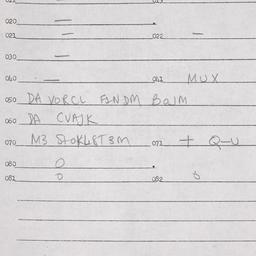 020 —
021 — 022 —
030 —
040 — 041 MUX
050 DA VORCL FINDM BQIM
060 DA CVAJK
070 M3 StOKL8T3M 071 + Q-U
080 0
081 0 082 0